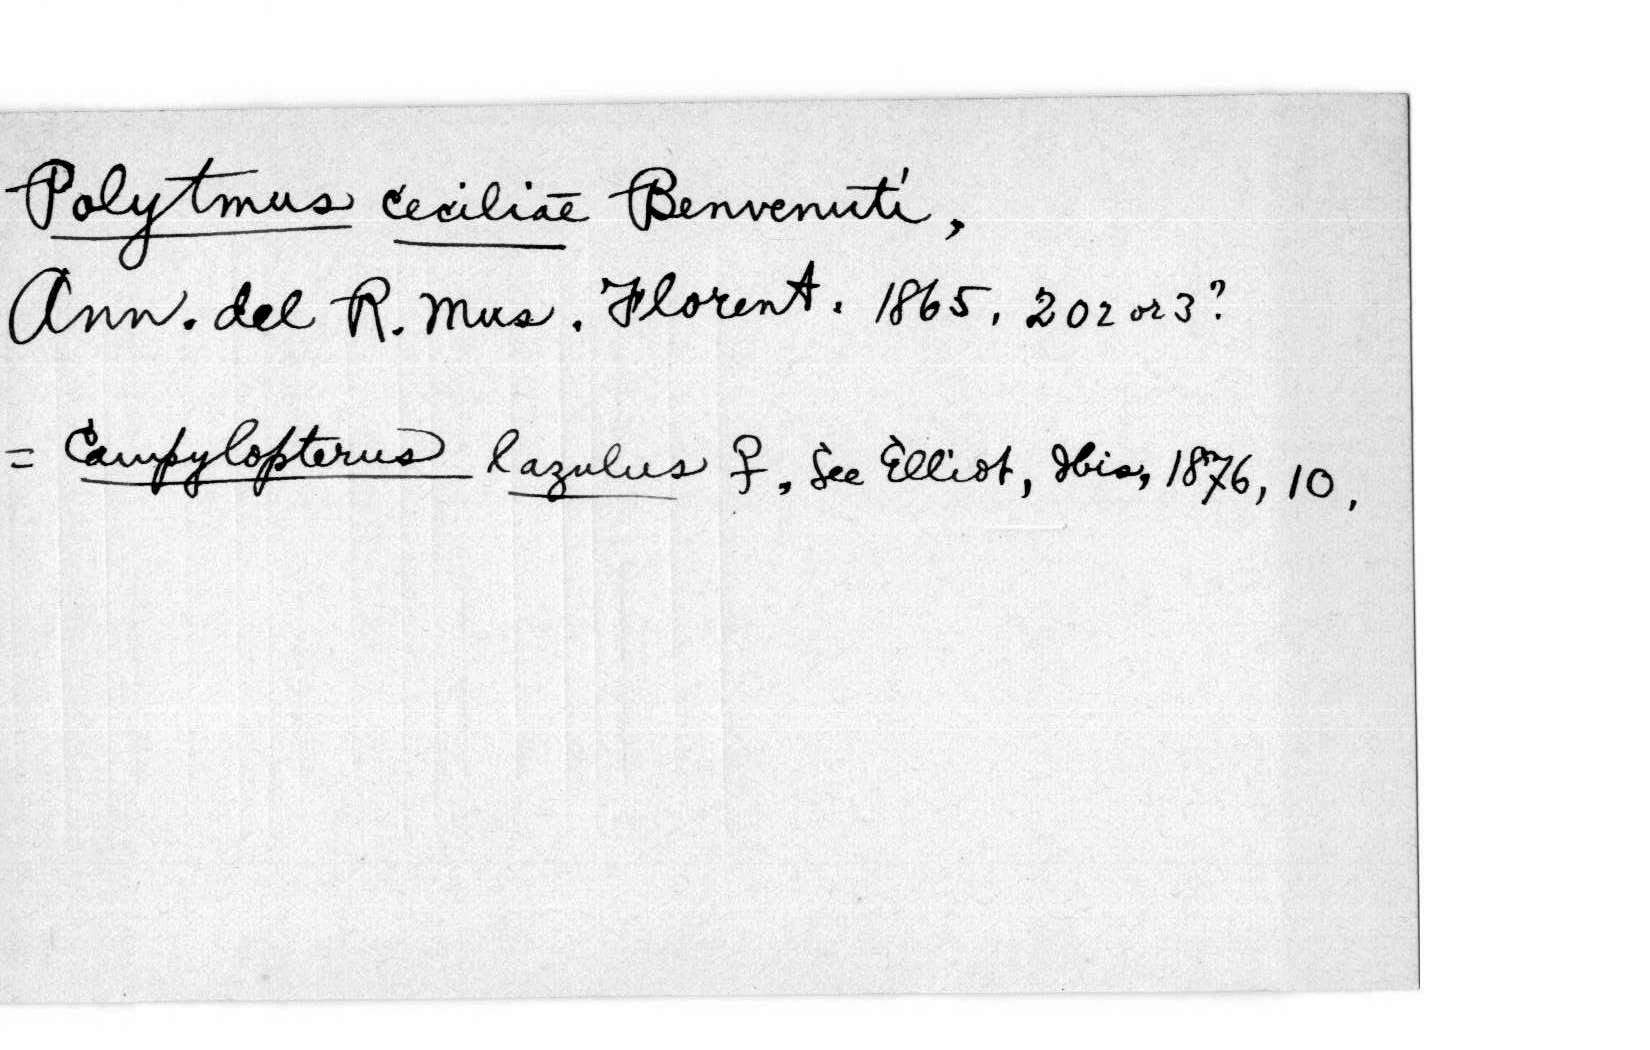 Polytmus ceciliae Benvenuti,
Ann. del R. Mus. Florent. 1865, 202 or 3?
= Campylopterus lazulus ♀, See Elliot, Ibis, 1876, 10,